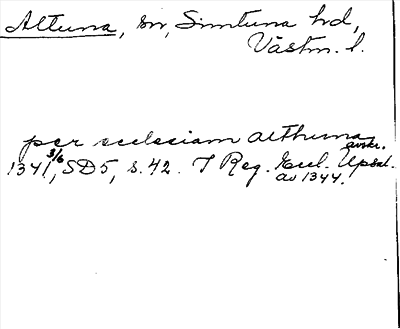 Altuna, sn, Simtuna hd,
Västm. l.
per ecclesiam Althuna
avskr.
1341 3/6, SD5, s. 42. I Reg. Eccl. Upsal.
av 1344.